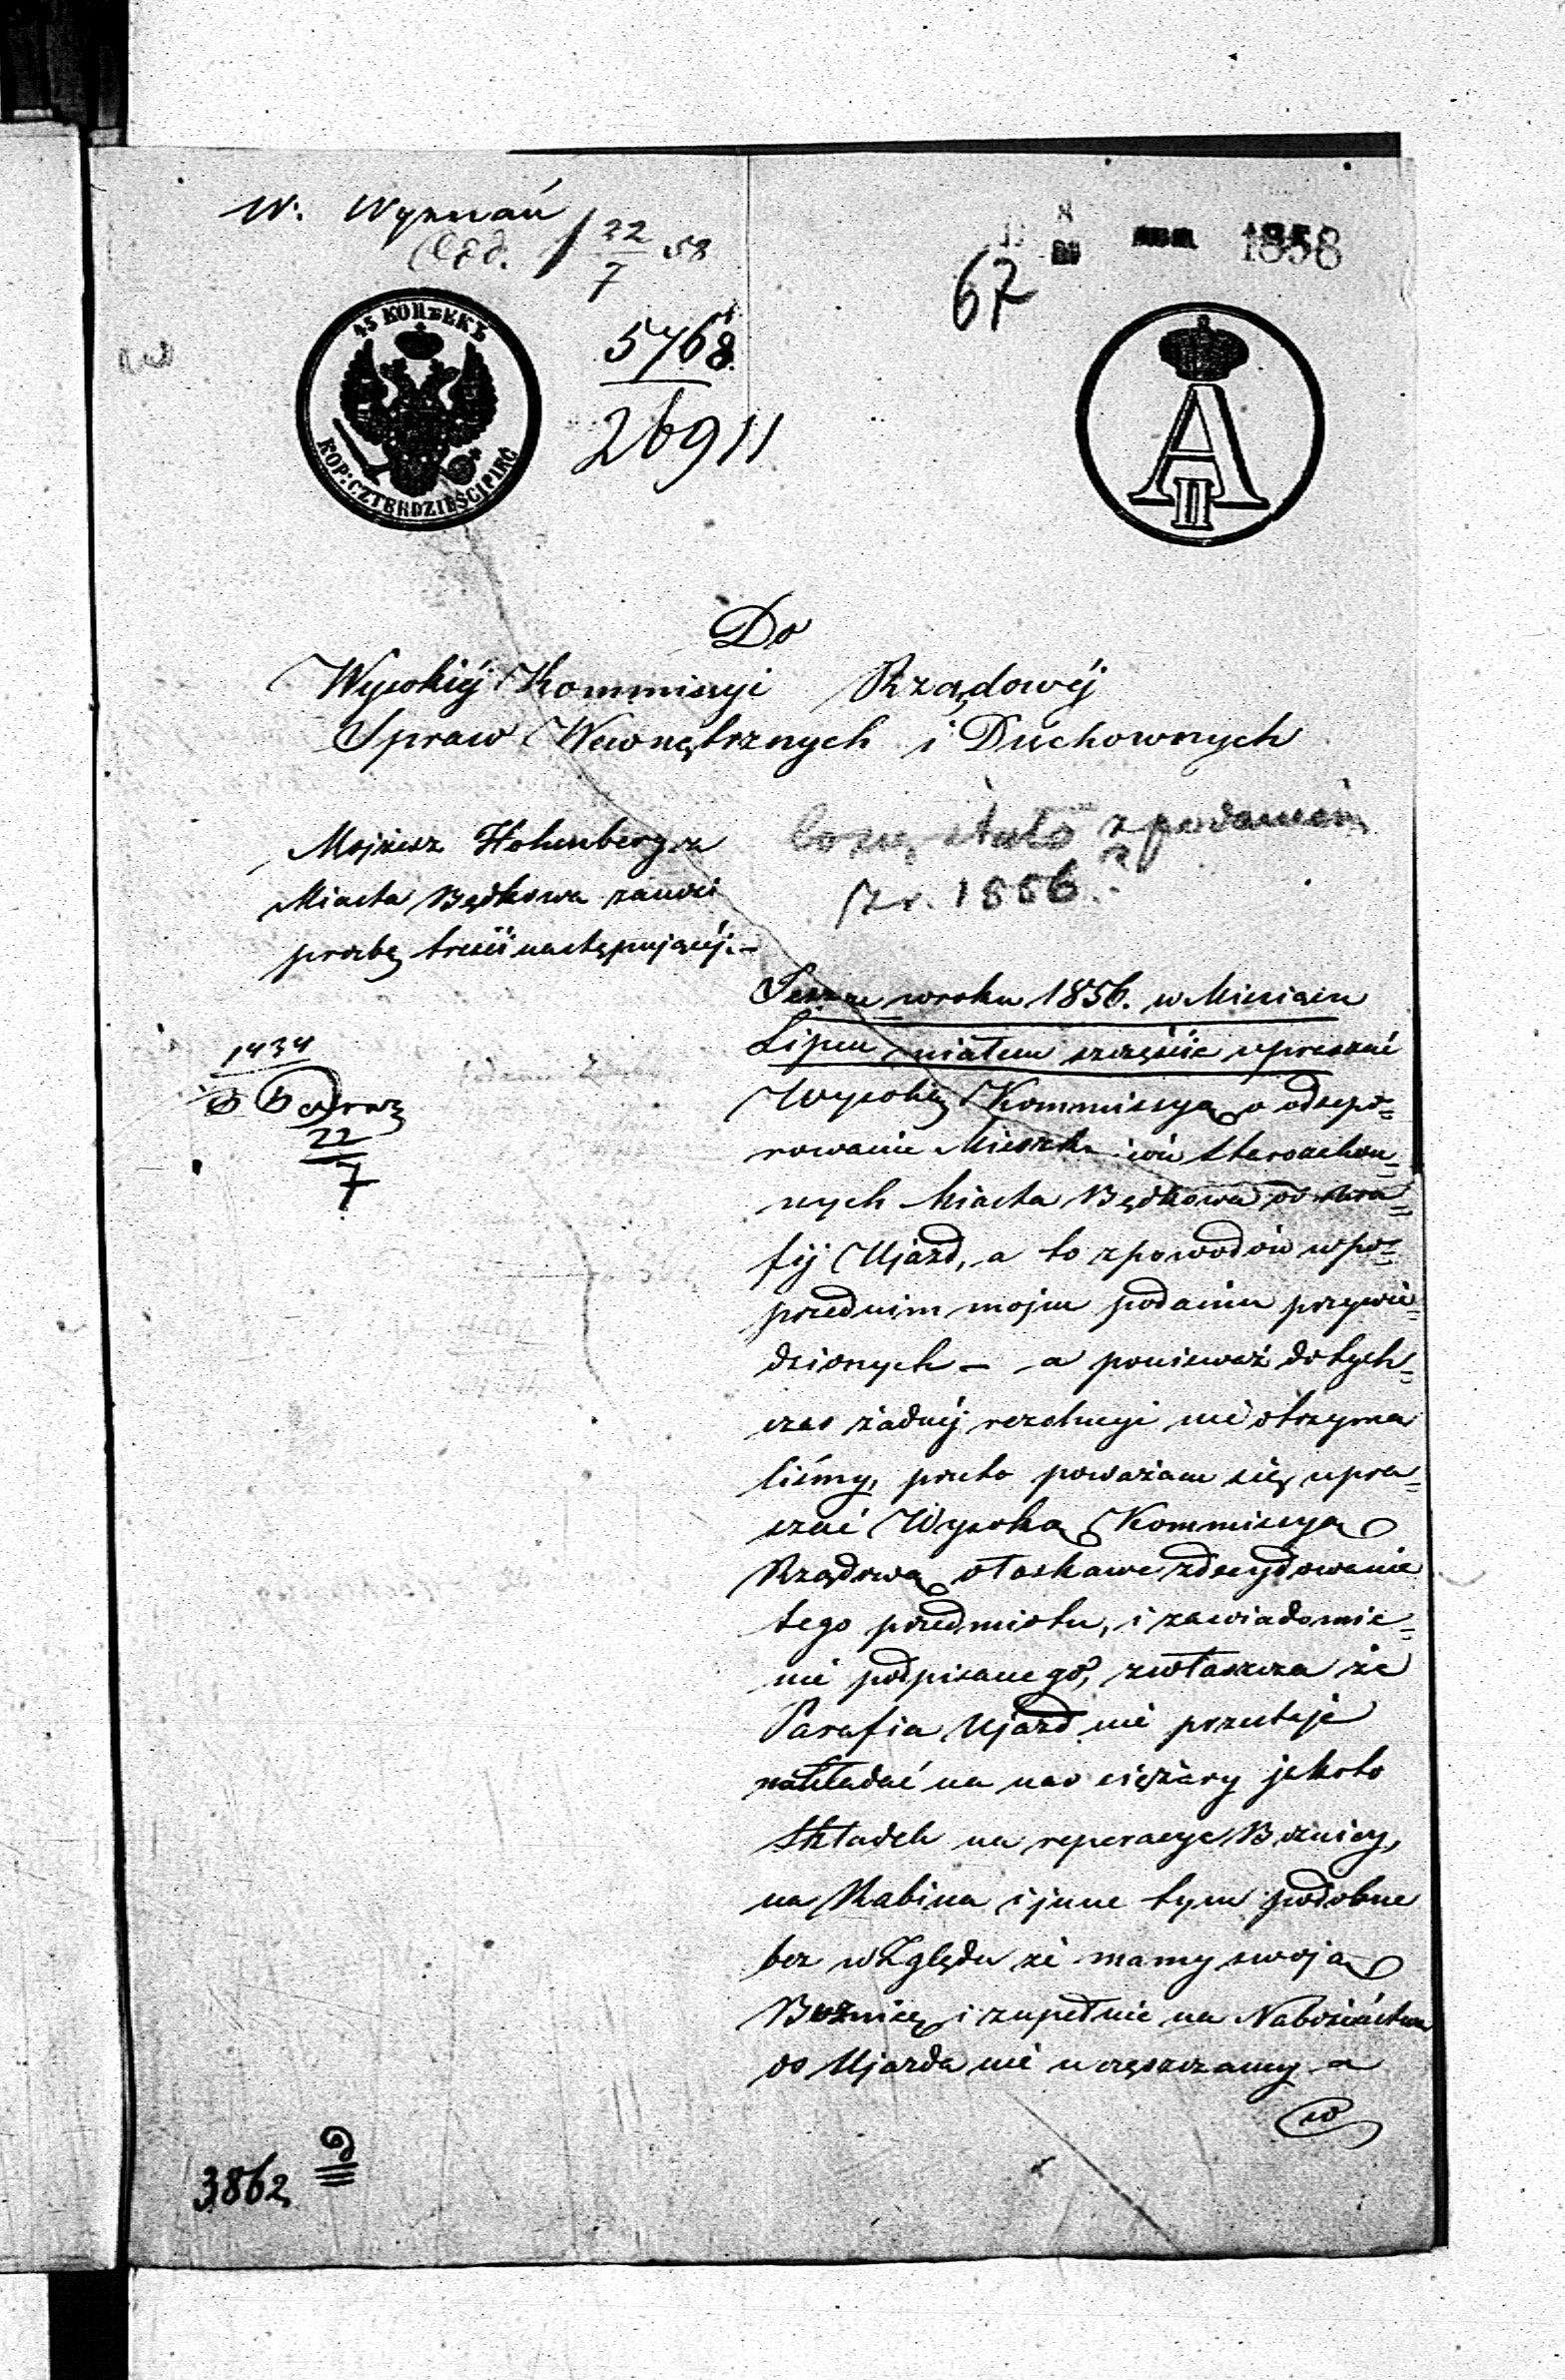 W. Wyznań
22/7 58
8
1858
67
45 КОПѢЕКЪ
KOP: CZTERDZIEŚCI PIĘĆ
5768
26911
A II
Do
Wysokiéj Kommissyi Rządowéj
Spraw Wewnętrznych i Duchownych
Mojżesz Hohenberg z
Miasta Będkowa zanosi
prozbę treści następującéj. —
Co się stało z podaniem
z r. 1856.?
1434
22
7
Jeszcze w roku 1856. w Miesiącu
Lipcu miałem szczęście upraszać
Wysokię Kommissyą o odsepa=
rowanie Mieszkańców Starozakon=
nych Miasta Będkowa od Para=
fij Ujazd, a to z powodów w po=
przednim mojem podaniu przywie=
dzionych — a ponieważ dotych=
czas żadnéj rezolucyi nie otrzyma
liśmy, przeto poważam się upra=
szać Wysoką Kommissyą
Rządową o łaskawe zdecydowanie
tego przedmiotu, i zawiadomie=
nie podpisanego, zwłaszcza że
Parafia Ujazd nie przestaje
nakładać na nas ciężary jakoto
składek na reperacye Bożnicy,
na Rabina i inne tym podobne
bez względu że mamy swoją
Bożnicę i zupełnie na Nabożeństwo
do Ujazda nie uczęszczamy a
w
3862